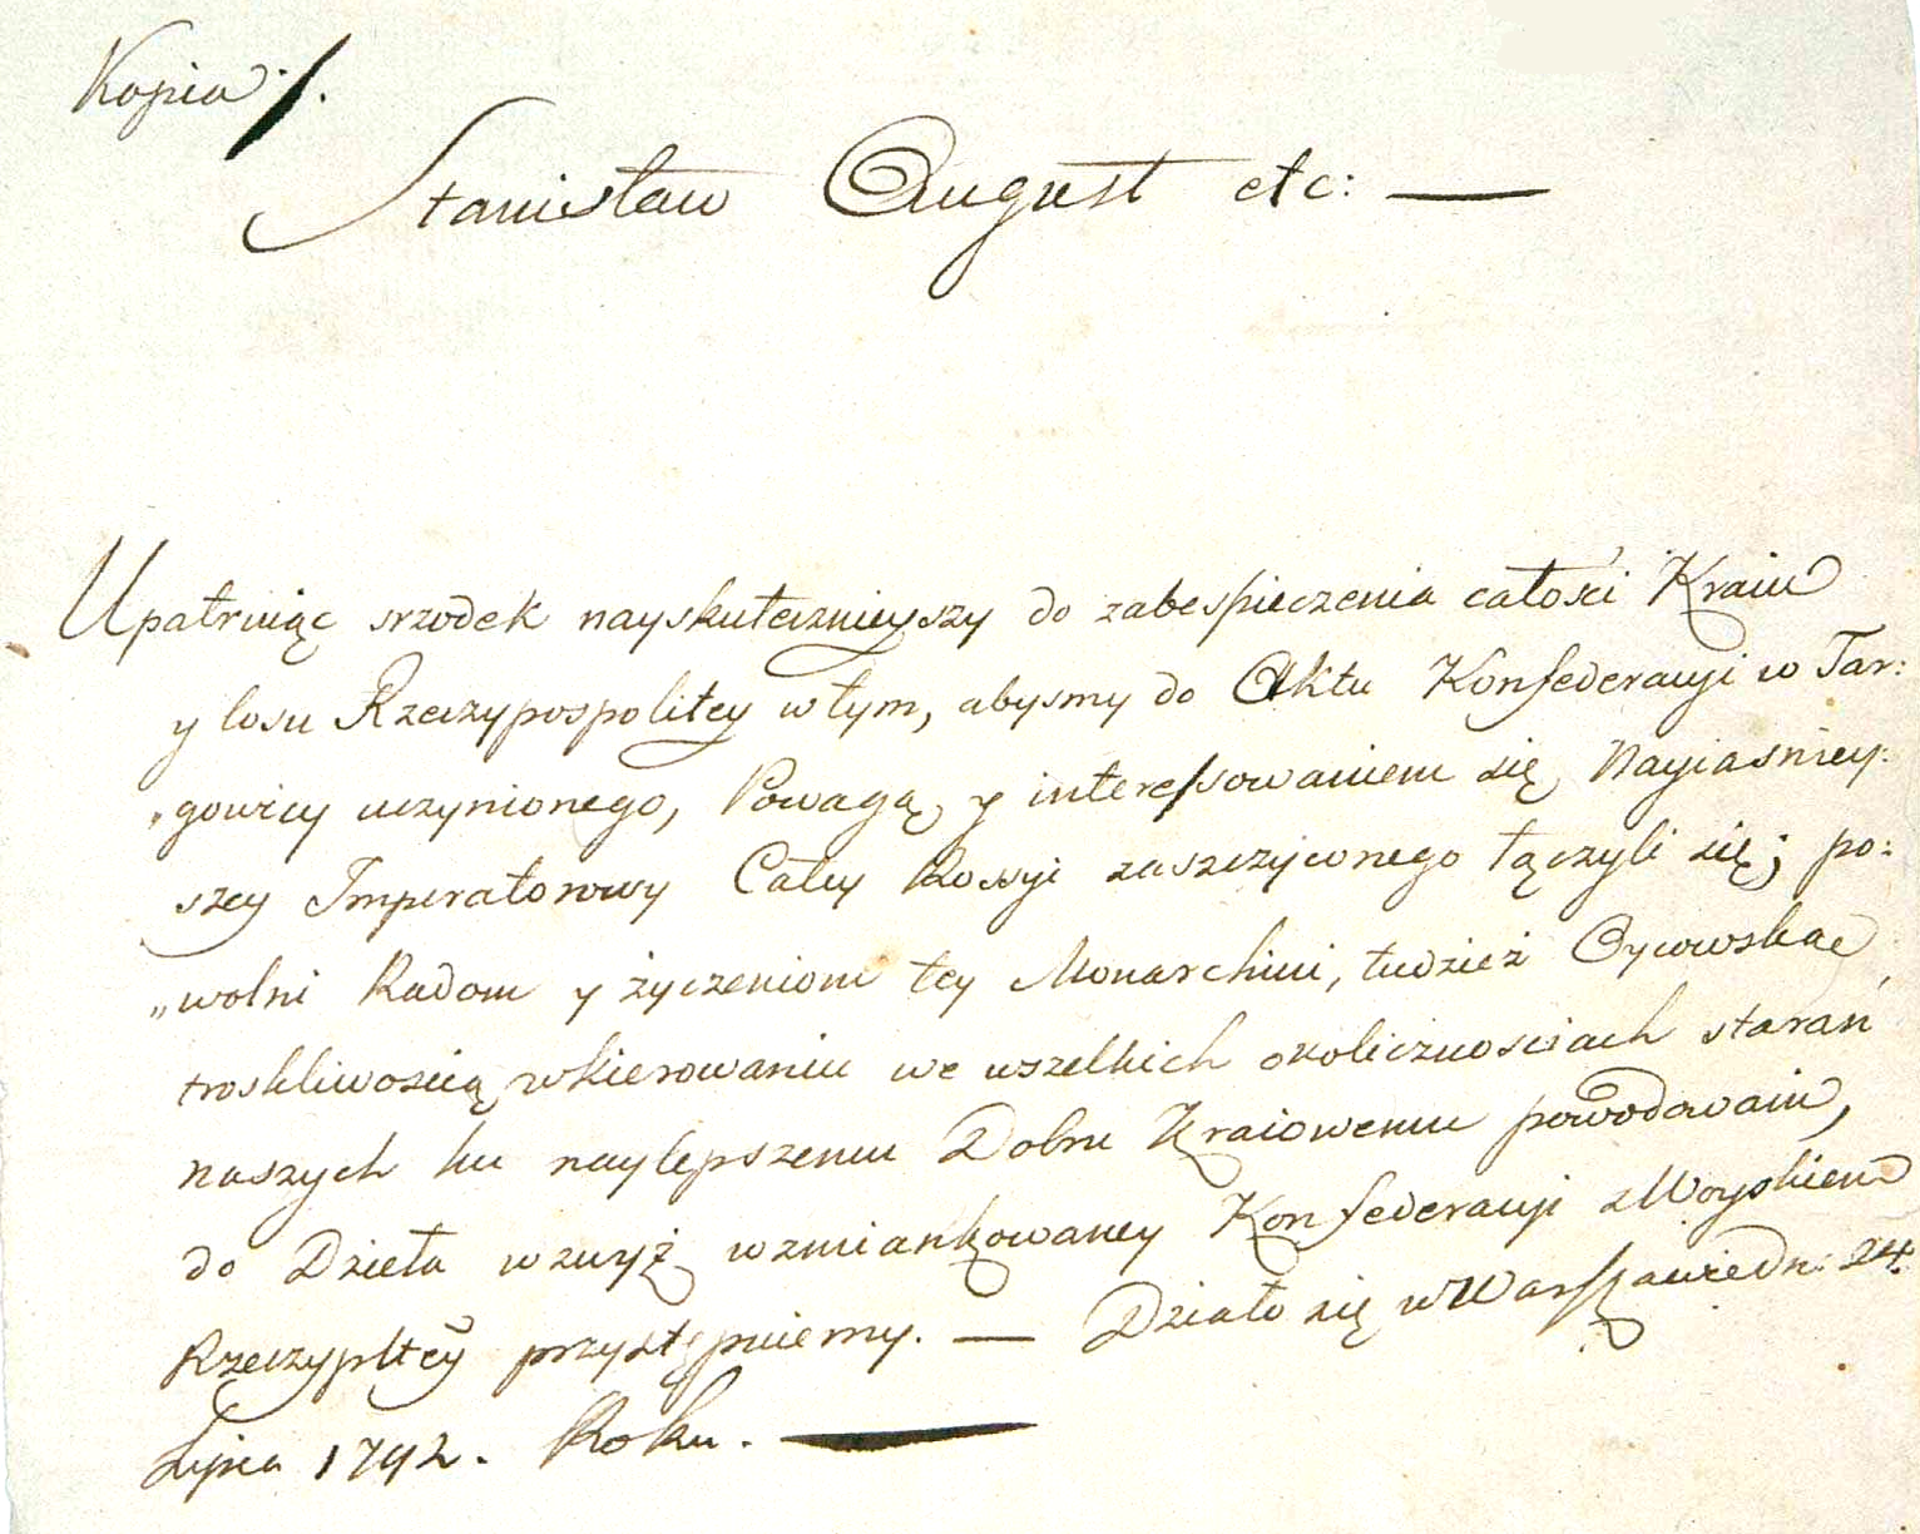 Kopia ·/.
Stanisław August etc: —
Upatruiąc srzodek nayskutecznieyszy do zabespieczenia całości Kraiu
y losu Rzeczypospolitey w tym, abysmy do Aktu Konfederacyi w Tar:
„gowicy uczynionego, Powagą y interessowaniem się Nayiasniey:
szey Imperatorowy Całey Rossyi zaszczyconego łączyli się; po:
„wolni Radom y życzeniom tey Monarchini, tudzież Oycowską
troskliwoscią w kierowaniu we wszelkich okolicznosciach starań
naszych ku naylepszemu Dobru Kraiowemu powodowani,
do Dzieła wzwyż wzmiankowaney Konfederacyi z Woyskiem
Rzeczypltey przystępuiemy. — Działo się w Warszawie dn: 24.
Lipca 1792. Roku. —